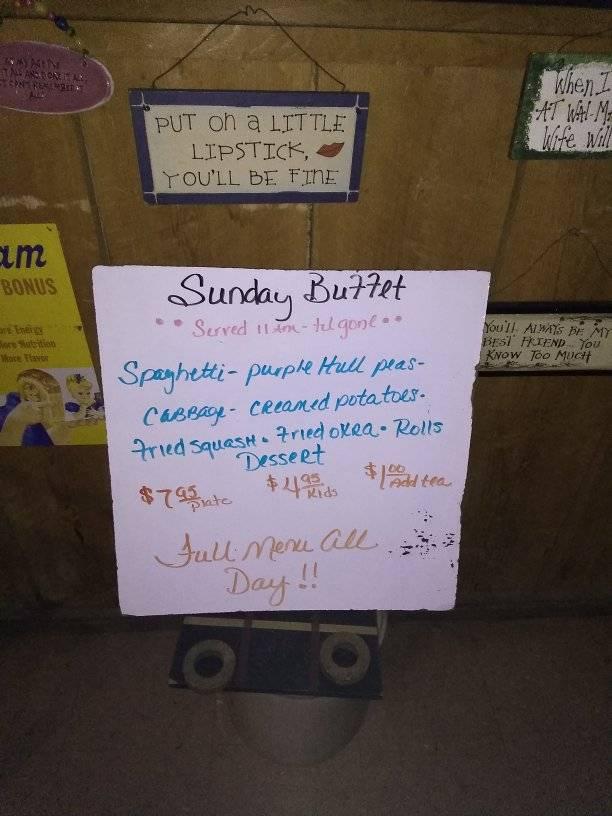 PUT ON A LITTLE
LIPSTICK,
YOU'LL BE FINE
When I
AT WAL-MA
Wife Will
am
BONUS
Energy
More Nutrition
More Flavor
YOU'LL ALWAYS BE MY
BEST FRIEND... YOU
KNOW TOO MUCH
Sunday Buffet
•• Served 11 am - til gone ••
Spaghetti - purple Hull peas -
Cabbage - creamed potatoes -
Fried squash • Fried okra • Rolls
Dessert
$7.95 plate
$4.95 Kids
$1.00 Add tea
Full Menu All
Day!!